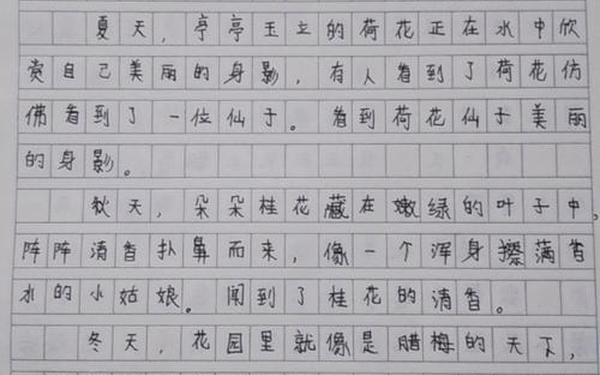 夏天，亭亭玉立的荷花正在水中欣
赏自己美丽的身影，有人看到了荷花仿
佛看到了一位仙子。看到荷花仙子美丽
的身影。
秋天，朵朵桂花藏在嫩绿的叶子中。
阵阵清香扑鼻而来，像一个浑身擦满香
水的小姑娘。闻到了桂花的清香。
冬天，花园里就像是腊梅的天下，